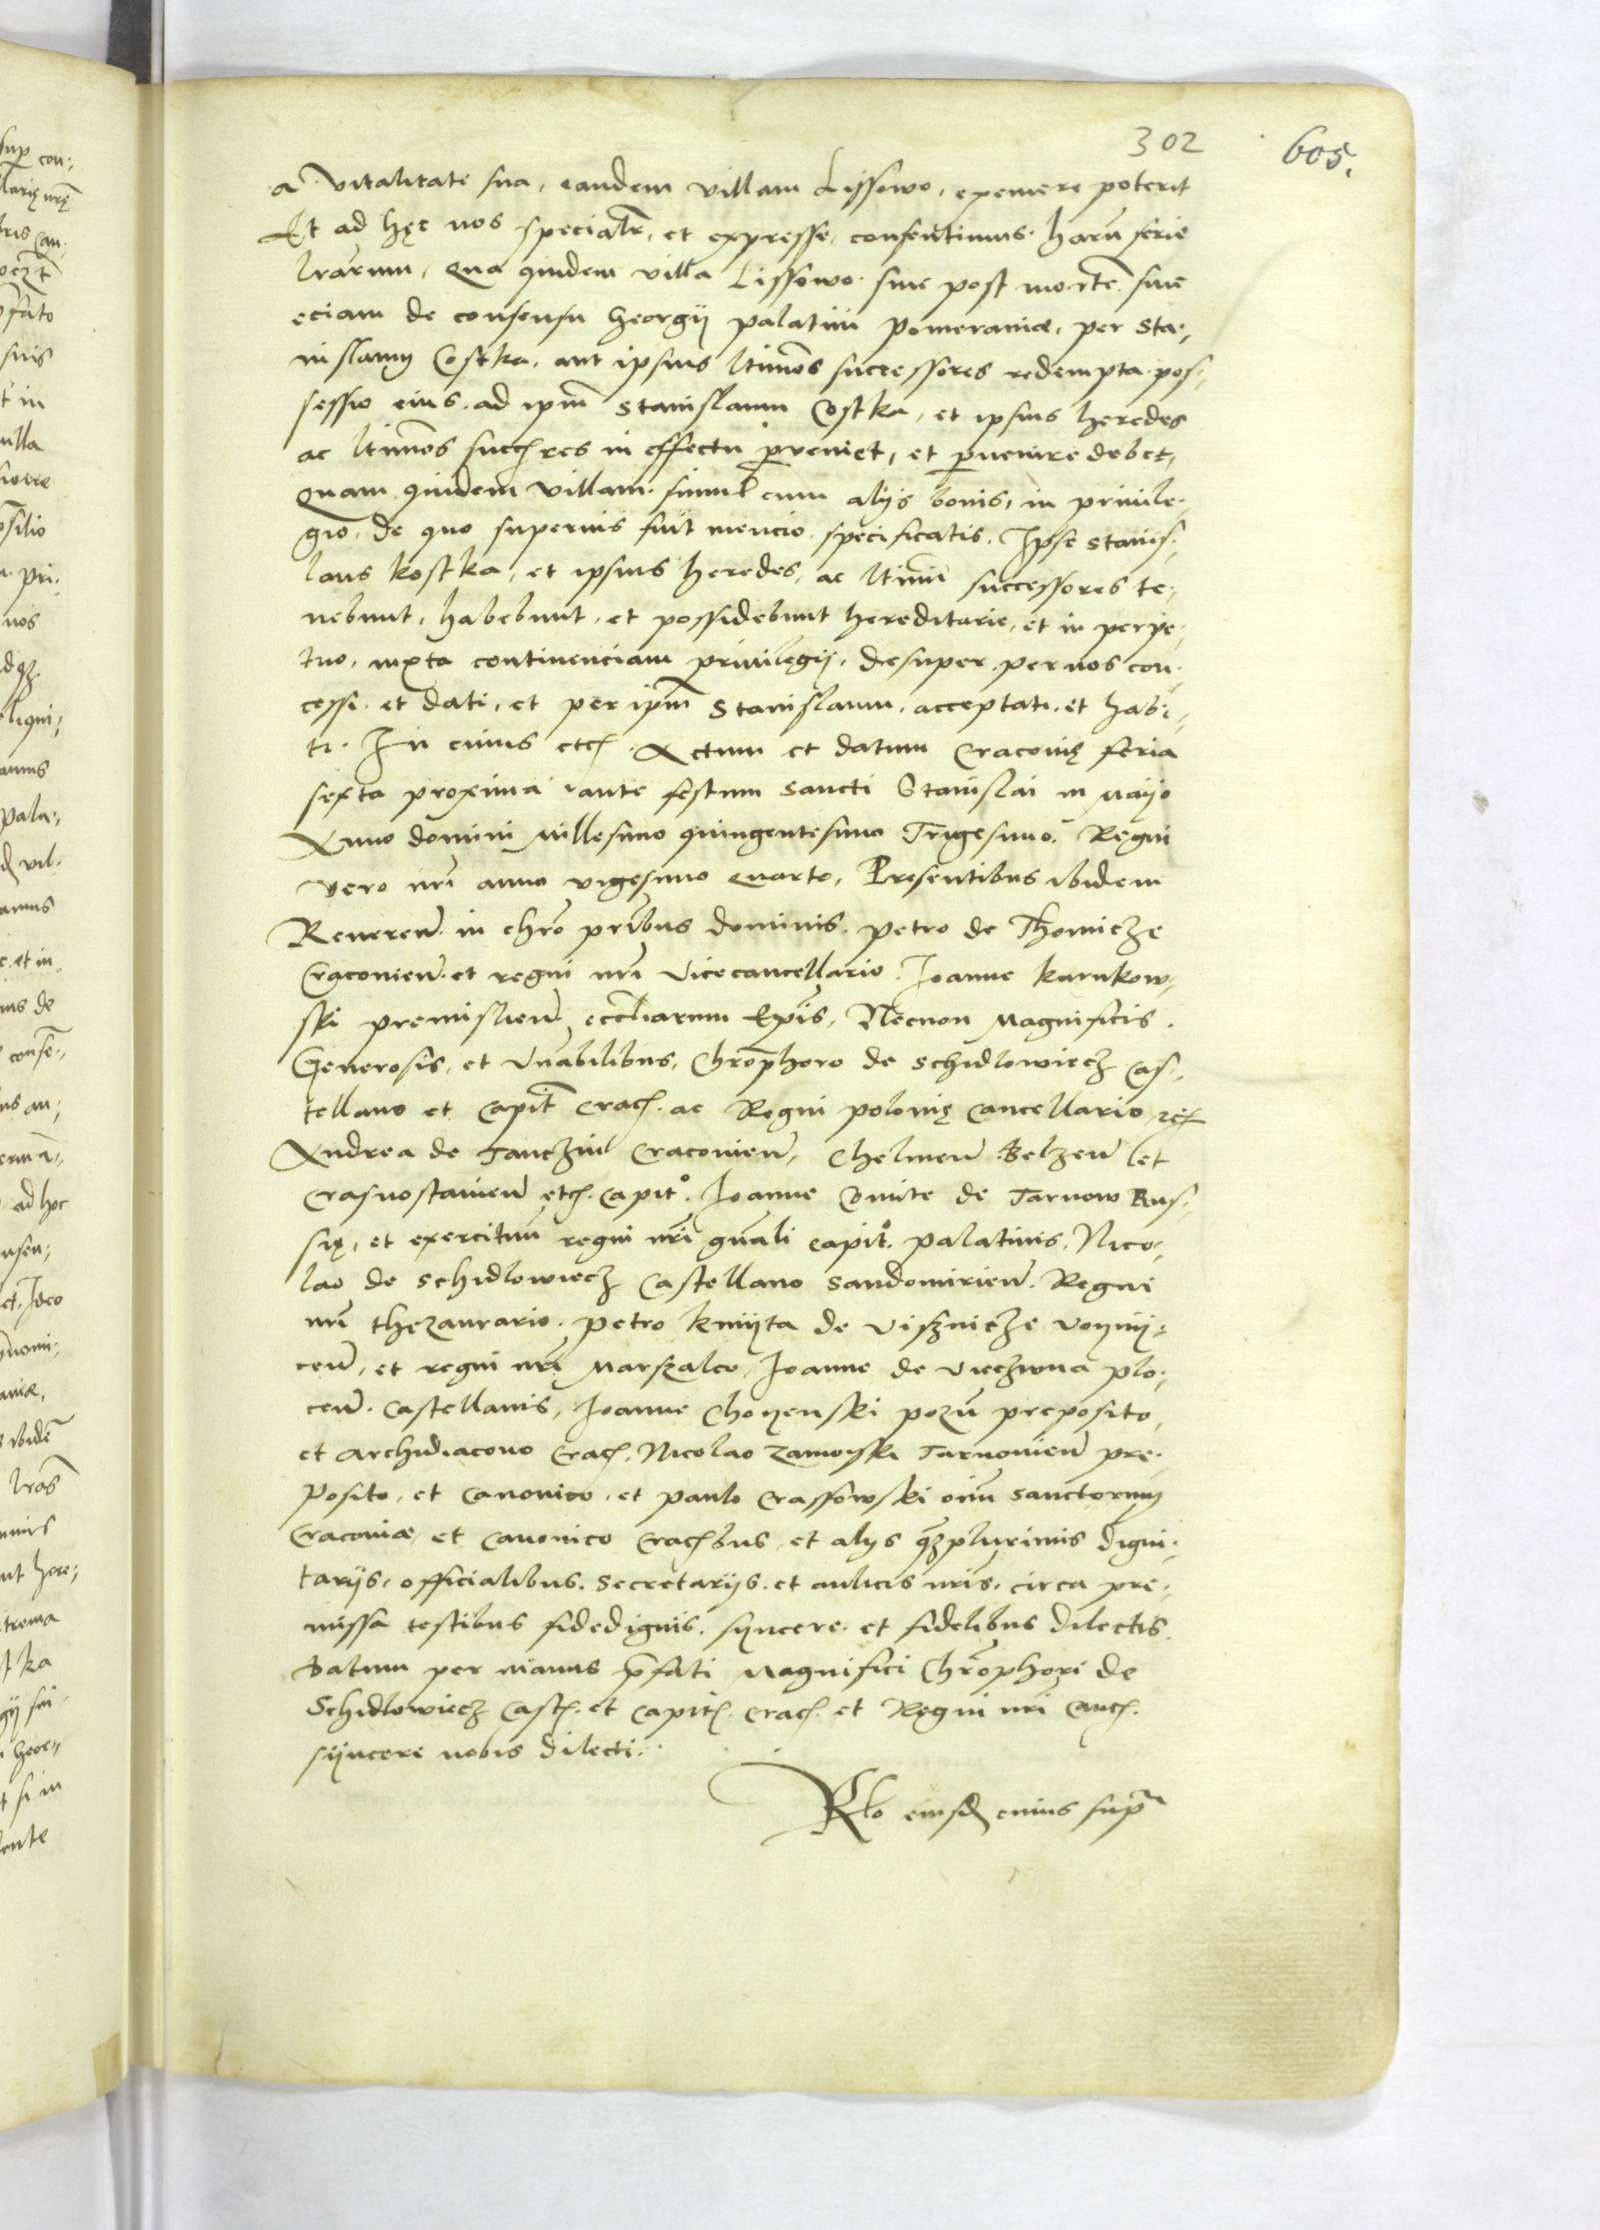 302
605.
a vitalitate sua, eandem villam Lissowo, exemere poterit
Et ad hęc nos specialr̃, et expresse, consentimus. harũ serie
lr̃arum, Qua quidem villa Lissowo. siue post mortẽ. siue
eciam de consensu Georgij palatini Pomeraniæ, per Sta-
nislaum Costka, aut ipsius ltimos successores redempta. pos-
sessio eius. ad ipm̃ Stanislaum Costka, et ipsius heredes
ac ltimos succres in effectu perveniet, et peruenire debet,
Quam quidem villam. simul cum alijs bonis, in priuile-
gio, de quo superius fuit mencio specificatis. Ipse Stanis-
laus Kostka, et ipsius heredes, ac ltimi successores te-
nebunt, habebunt, et possidebunt hereditarie, et in perpe-
tuo, iuxta continenciam priuilegij, desuper. per nos con-
cessi. et dati, et per ipm̃ Stanislaum. acceptati. et habi-
ti. In cuius etc. Actum et datum Cracouię feria
sexta proxima ante festum Sancti Stanislai in Maijo
Anno domini Millesimo quingentesimo Trigesimo. Regni
vero nr̃i anno vigesimo quarto, Presentibus ibidem
Reueren̄. in chr̃o pr̃ibus dominis. petro de Thomicze
Cracouien̄. et regni nr̃i vicecancellario. Ioanne Karnkow-
ski premislien̄ eccl̃iarum Ep̃is, Necnon Magnificis.
Generosis, et Vn̄abilibus, Chr̃ophoro de Schidlowiecz Cas-
tellano et Capit̃ Crac. ac Regni polonię Cancellario etc
Andrea de Tanczin Cracouien̄, Chelmen̄ Belzen̄ et
Crasnostauien̄ etc. Capit°. Ioanne Comite de Tarnow Rus-
się, et exercituũ regni nr̃i gn̄ali capit°. palatinis. Nico-
lao de Schidlowiecz Castellano Sandomirien̄. Regni
nr̃i thezaurario. Petro Kmijta de Viszniche Voynij-
cen̄, et regni nr̃i Marszalco, Ioanne de Viechwna plo-
cen̄. Castellanis, Ioanne Choyenski pozn̄ preposito,
et Archidiacono Crac. Nicolao Zamoyski Tarnouien̄ pre-
posito, et Canonico, et paulo Crassowski oim̃ Sanctorum
Cracouiæ, et Canonico Cracbus, et alijs q̃zplurimis digni-
tarijs, officialibus. Secretarijs. et aulicis nr̃is. circa pre-
missa testibus fidedignis. sijncere. et fidelibus dilectis.
Datum per manus p̃fati Magnifici Chr̃ophori de
Schidlowiecz Cast. et Capit. Crac. et Regni nr̃i Canc.
sijncere nobis dilecti.
Rl̃o eiusd cuius sup̃